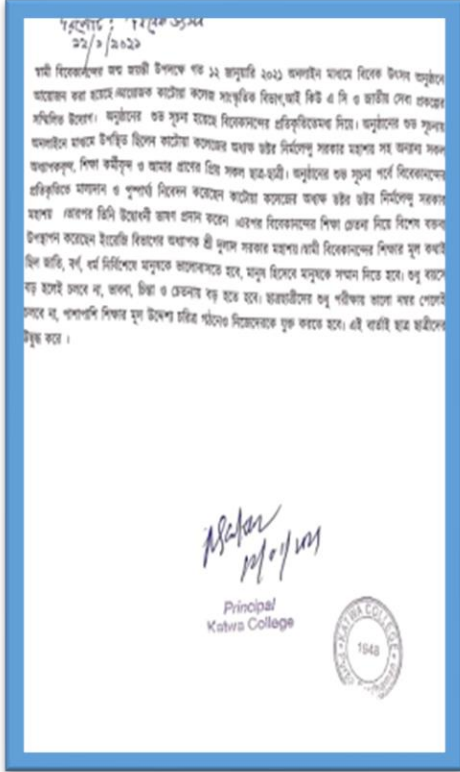 বিবেক উৎসব
২২/১/২০২১
স্বামী বিবেকানন্দের জন্ম জয়ন্তী উপলক্ষে গত ১২ জানুয়ারি ২০২১ অনলাইন মাধ্যমে বিবেক উৎসব অনুষ্ঠানে
আয়োজন করা হয়েছে।আয়োজক কাটোয়া কলেজ সাংস্কৃতিক বিভাগ,আই কিউ এ সি ও জাতীয় সেবা প্রকল্পের
সম্মিলিত উদ্যোগ। অনুষ্ঠানের শুভ সূচনা হয়েছে বিবেকানন্দের প্রতিকৃতিতে দিয়ে। অনুষ্ঠানের শুভ সূচনায়
অনলাইনে মাধ্যমে উপস্থিত ছিলেন কাটোয়া কলেজের অধ্যক্ষ ডক্টর নির্মলেন্দু সরকার মহাশয় সহ অন্যান্য সকল
অধ্যাপকবৃন্দ, শিক্ষা কর্মীবৃন্দ ও আমার প্রাণের প্রিয় সকল ছাত্র-ছাত্রী। অনুষ্ঠানের শুভ সূচনা পর্বে বিবেকানন্দের
প্রতিকৃতিতে মাল্যদান ও পুষ্পার্ঘ্য নিবেদন করেছেন কাটোয়া কলেজের অধ্যক্ষ ডক্টর ডক্টর নির্মলেন্দু সরকার
মহাশয় ।তারপর তিনি উদ্বোধনী ভাষণ প্রদান করেন ।এরপর বিবেকানন্দের শিক্ষা চেতনা নিয়ে বিশেষ বক্তব্য
উপস্থাপন করেছেন ইংরেজি বিভাগের অধ্যাপক শ্রী দুলাল সরকার মহাশয়।স্বামী বিবেকানন্দের শিক্ষার মূল কথাই
ছিল জাতি, বর্ণ, ধর্ম নির্বিশেষে মানুষকে ভালোবাসতে হবে, মানুষ হিসেবে মানুষকে সম্মান দিতে হবে। শুধু বয়সে
বড় হলেই চলবে না, ভাবনা, চিন্তা ও চেতনায় বড় হতে হবে। ছাত্রছাত্রীদের শুধু পরীক্ষায় ভালো নম্বর পেলেই
চলবে না, পাশাপাশি শিক্ষার মূল উদ্দেশ্য চরিত্র গঠনেও নিজেদেরকে যুক্ত করতে হবে। এই বার্তাই ছাত্র ছাত্রীদের
উদ্বুদ্ধ করে ।
Principal
Katwa College
KATWA COLLEGE
1948